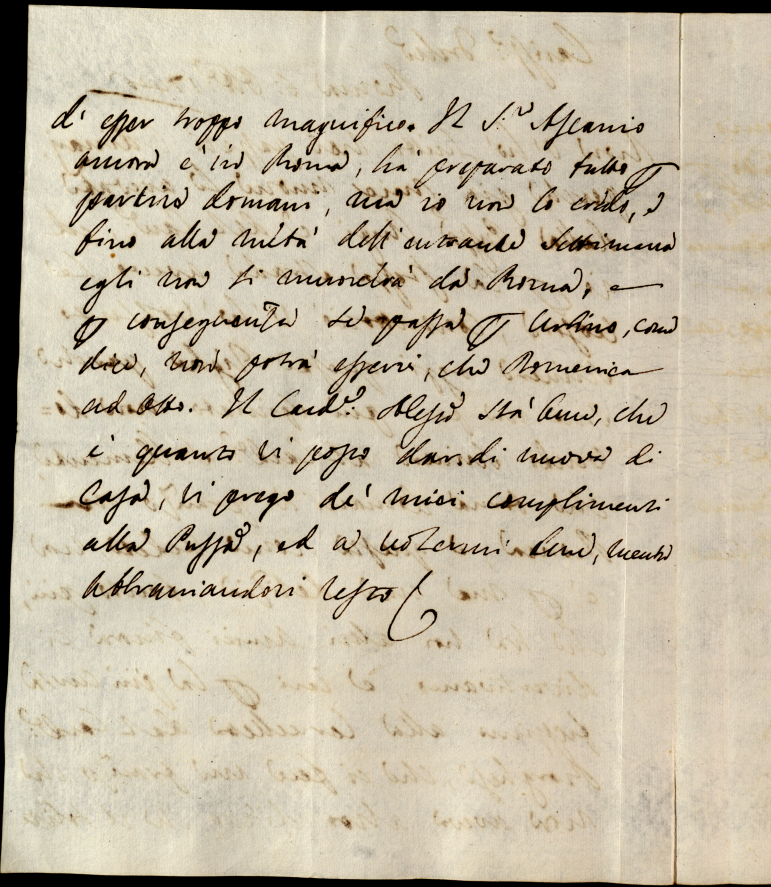 d'esser troppo magnifico. Il S.r Ascanio
ancora è in Roma, ha preparato tutto p
partire domani, ma io non lo credo, e
fino alla metà dell'entrante Settimana
egli non si muoverà da Roma, e
p conseguenza se passa p Urbino, come
dice, non potrà essere, che Domenica
ad otto. Il Card.e Aless.o stà bene, che
è quanto vi posso dar di nuova di
Casa, vi prego de' miei complimenti
alla Pnssa, ed a volermi bene, mentre
abbracciandovi resto